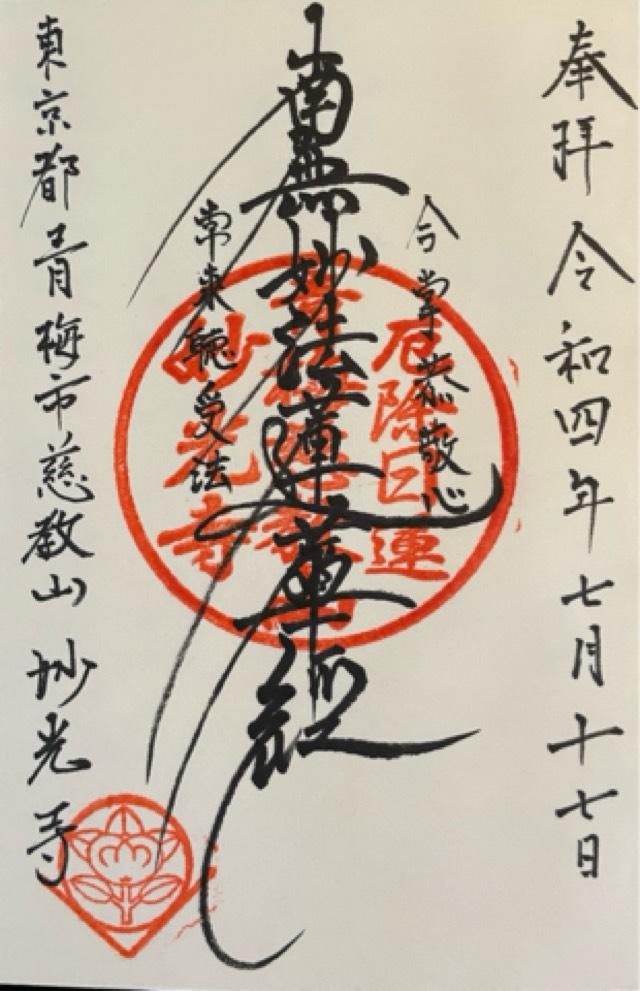 奉拝 令和四年七月十七日
合掌恭敬心
南無妙法蓮華経
常来聴受法
東京都青梅市慈教山 妙光寺
厄除日蓮
妙光寺